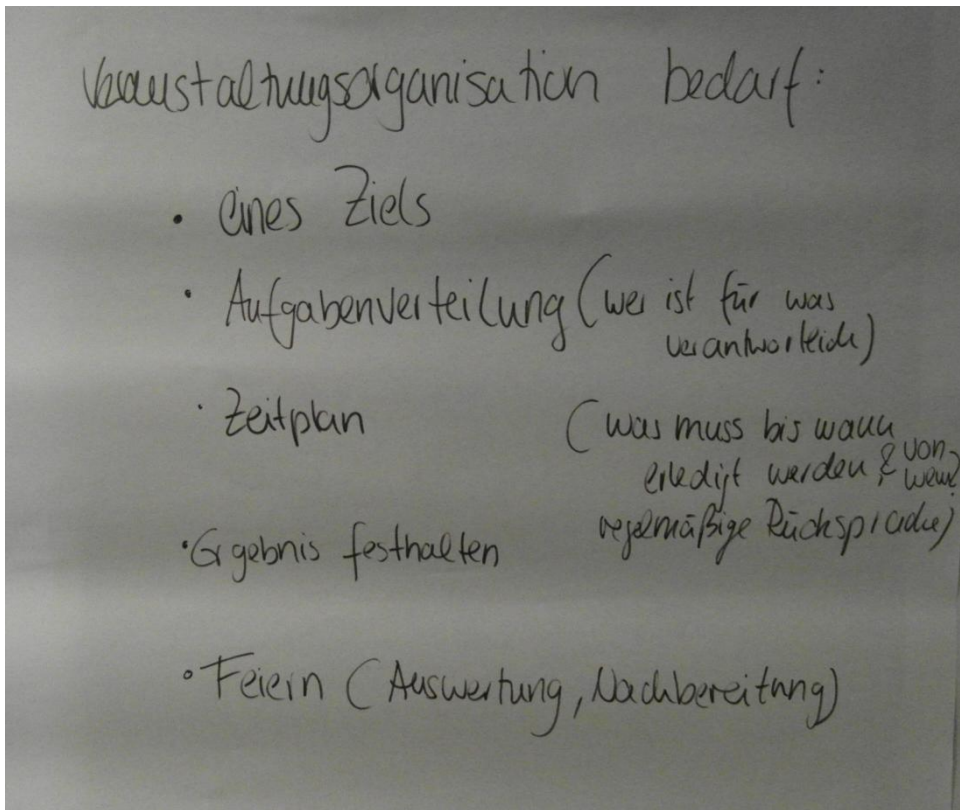 Veranstaltungsorganisation bedarf:
• eines Ziels
• Aufgabenverteilung (wer ist für was
verantwortlich)
• Zeitplan (was muss bis wann
erledigt werden & von wem?
regelmäßige Rücksprache)
• Ergebnis festhalten
• Feiern (Auswertung, Nachbereitung)